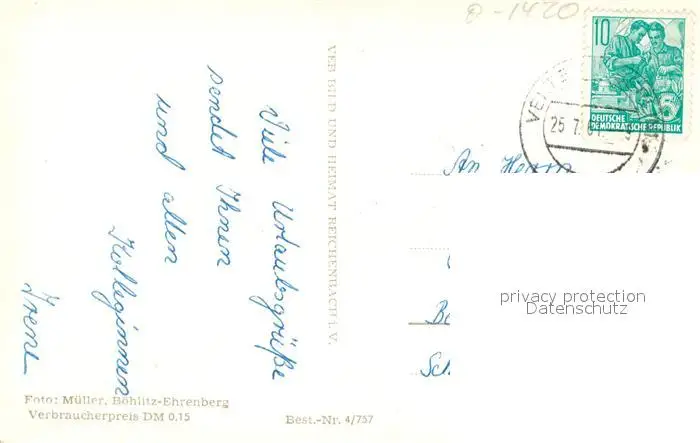 Viele Urlaubsgrüße
sendet Ihnen
und allen
Kolleginnen
Irene
Foto: Müller, Böhlitz-Ehrenberg
Verbraucherpreis DM 0,15
Best.-Nr. 4/757
VEB BILD UND HEIMAT REICHENBACH i. V.
10
DEUTSCHE
DEMOKRATISCHE REPUBLIK
25 7
An Herrn
privacy protection
Datenschutz